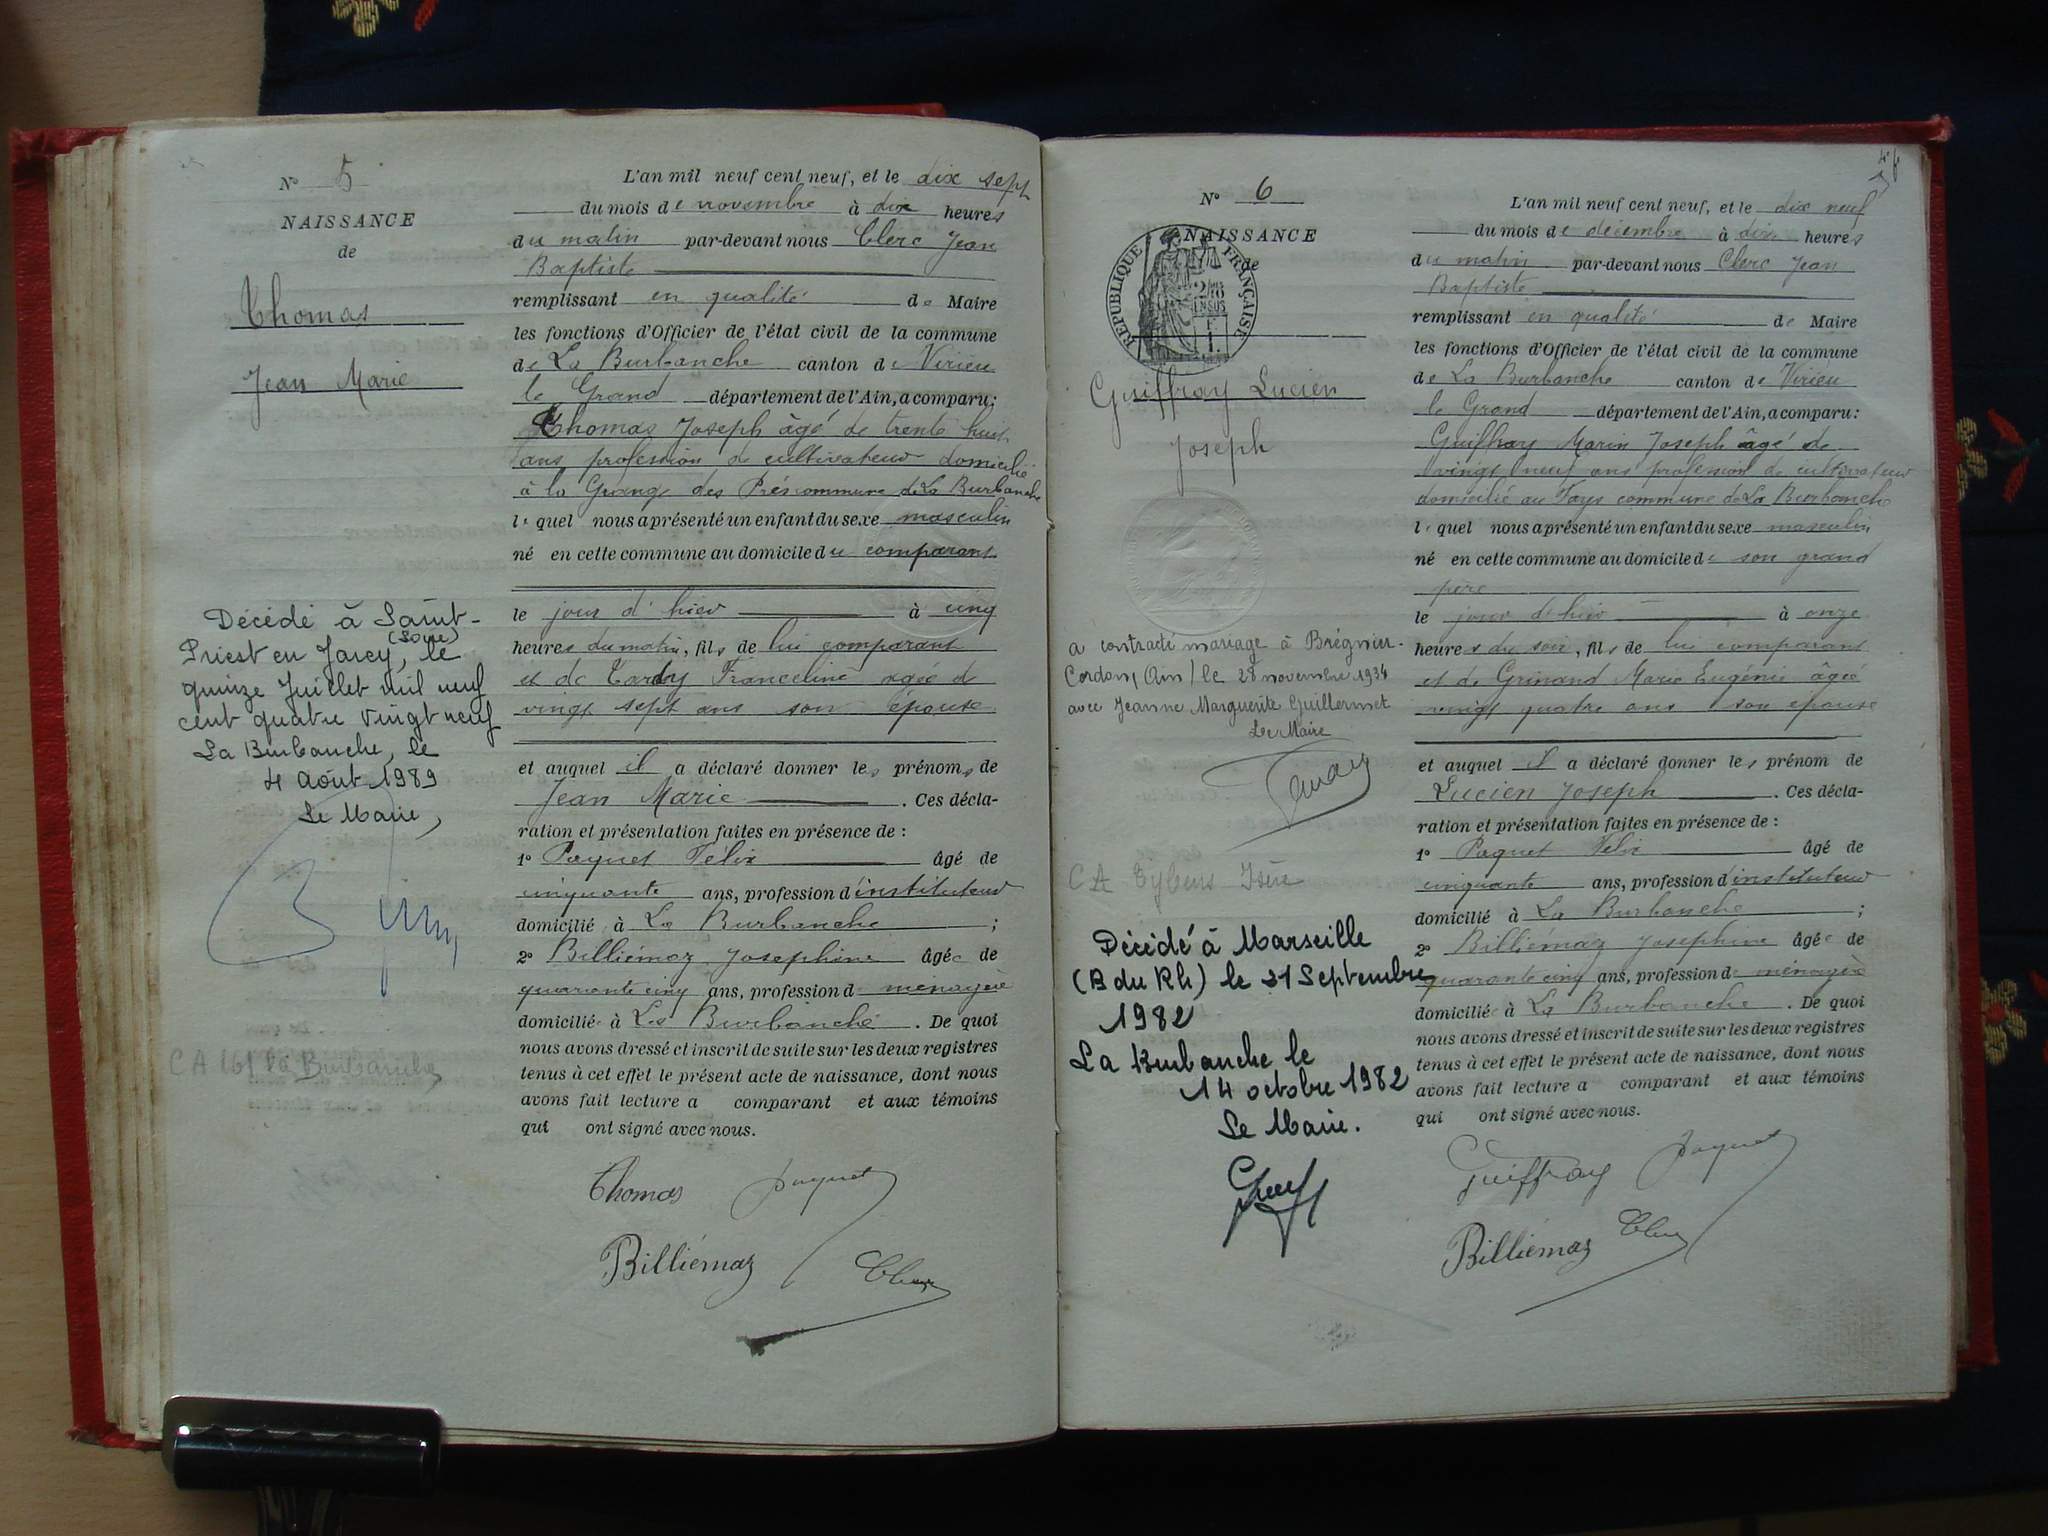 N° 5
NAISSANCE
de
Thomas
Jean Marie
Décédé à Saint-
Priest en Jarey, (Loire) le
quinze Juillet mil neuf
cent quatre vingt neuf
La Burbanche, le
4 Août 1989
Le Maire,
CA 161 La Burbanche
L'an mil neuf cent neuf, et le dix sept
du mois de novembre à dix heures
du matin par-devant nous Clerc Jean
Baptiste
remplissant en qualité de Maire
les fonctions d'Officier de l'état civil de la commune
de La Burbanche canton de Virieu
le Grand département de l'Ain, a comparu:
Thomas Joseph âgé de trente huit
ans profession de cultivateur domicilié
à la Grange des Prés commune de La Burbanche
lequel nous a présenté un enfant du sexe masculin
né en cette commune au domicile du comparant
le jour d'hier à cinq
heures du matin, fils de lui comparant
et de Tardy Franceline agée de
vingt sept ans son épouse
et auquel il a déclaré donner les prénoms de
Jean Marie. Ces décla-
ration et présentation faites en présence de :
1° Paquet Félix âgé de
cinquante ans, profession d'instituteur
domicilié à La Burbanche ;
2° Billiémaz Josephine âgée de
quarante cinq ans, profession de ménagère
domiciliée à La Burbanche. De quoi
nous avons dressé et inscrit de suite sur les deux registres
tenus à cet effet le présent acte de naissance, dont nous
avons fait lecture a comparant et aux témoins
qui ont signé avec nous.
Thomas Paquet
Billiémaz Clerc
46
N° 6
NAISSANCE
de
RÉPUBLIQUE FRANÇAISE
Guiffray Lucien
Joseph
a contracté mariage à Brégnier-
Cordon, (Ain) le 28 novembre 1934
avec Jeanne Marguerite Guillermet
Le Maire
CA Eybens Isère
Décédé à Marseille
(B du Rh) le 21 Septembre
1982
La Burbanche le
14 octobre 1982
Le Maire.
L'an mil neuf cent neuf, et le dix neuf
du mois de décembre à dix heures
du matin par-devant nous Clerc Jean
Baptiste
remplissant en qualité de Maire
les fonctions d'Officier de l'état civil de la commune
de La Burbanche canton de Virieu
le Grand département de l'Ain, a comparu:
Guiffray Marin Joseph âgé de
vingt neuf ans profession de cultivateur
domicilié au Fays commune de La Burbanche
lequel nous a présenté un enfant du sexe masculin
né en cette commune au domicile de son grand
père
le jour d'hier à onze
heures du soir, fils de lui comparant
et de Grinand Marie Eugénie âgée
vingt quatre ans son épouse
et auquel il a déclaré donner les prénom de
Lucien Joseph. Ces décla-
ration et présentation faites en présence de :
1° Paquet Félix âgé de
cinquante ans, profession d'instituteur
domicilié à La Burbanche ;
2° Billiémaz Josephine âgée de
quarante cinq ans, profession de ménagère
domiciliée à La Burbanche. De quoi
nous avons dressé et inscrit de suite sur les deux registres
tenus à cet effet le présent acte de naissance, dont nous
avons fait lecture a comparant et aux témoins
qui ont signé avec nous.
Guiffray Paquet
Billiémaz Clerc